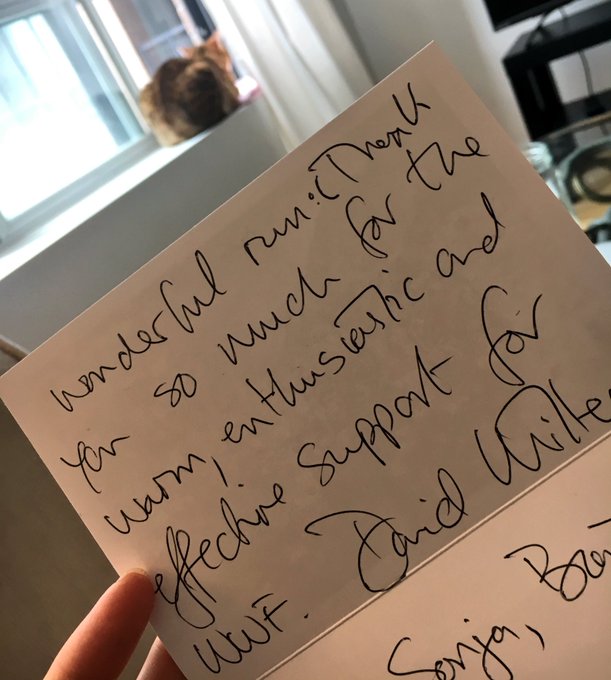 wonderful run:( Thank
you so much for the
warm, enthusiastic and
effective support for
WWF. David
Sonja,